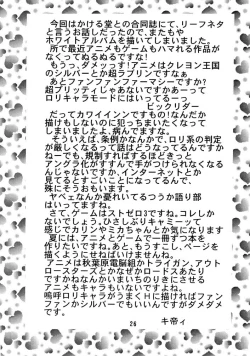 今回はかける堂との合同誌にて、リーフネタ
と言うお話しだったので、またもや
ホワイトアルバムを描いてしまいました。
所で最近アニメもゲームもハマれる作品が
なくってぬるぬるですな!
もうっ、ダメッす!アニメはクレヨン王国
のシルバーとか超ラブリンですなぁ
あとファンファンファーマシーですか?
超プリティじゃあないですかあーって
ロリキャラモードにはいってるーっ
ビックリダー
だってカワイインですもの!なんだか
描けもしないのに犯っちまいたくなって
しまいましたよ、病んでますな。
そういえば、条例かなんかで、ロリ系の判定
が厳しくなるって話はどうなってるんですか
ねーでも、規制すればするほどきっと
アングラ化がすすんで手がつけられなくなる
んじゃないですか、インターネットとか
見てるとすごいことになってるんで、
殊にそうおもいます。
ヤベェなんか憂れいてるつうか語り部
はいってますね。
さて、ゲームはストゼロ3ですな。コレしか
ないでしょう。ひさしぶりキャミーって
感じでカリンやミカちゃんとか気になります
夏には、アニメとゲームで一冊ずつ本を
作りたいですね。あともうすこし、ページを
描くようにせねばいけませんね。
アニメは秋葉原電脳組かトライガン、アウト
ロースターズとかなぜかロードスあたり
ですかねなんかいまいちのりきにさせる
アニメもキャラもいないですよね。
嗚呼ロリキャラがうまくHに描ければファン
ファンかシルバーでもいいんですがダメダメ
です。
キ帝ィ
26